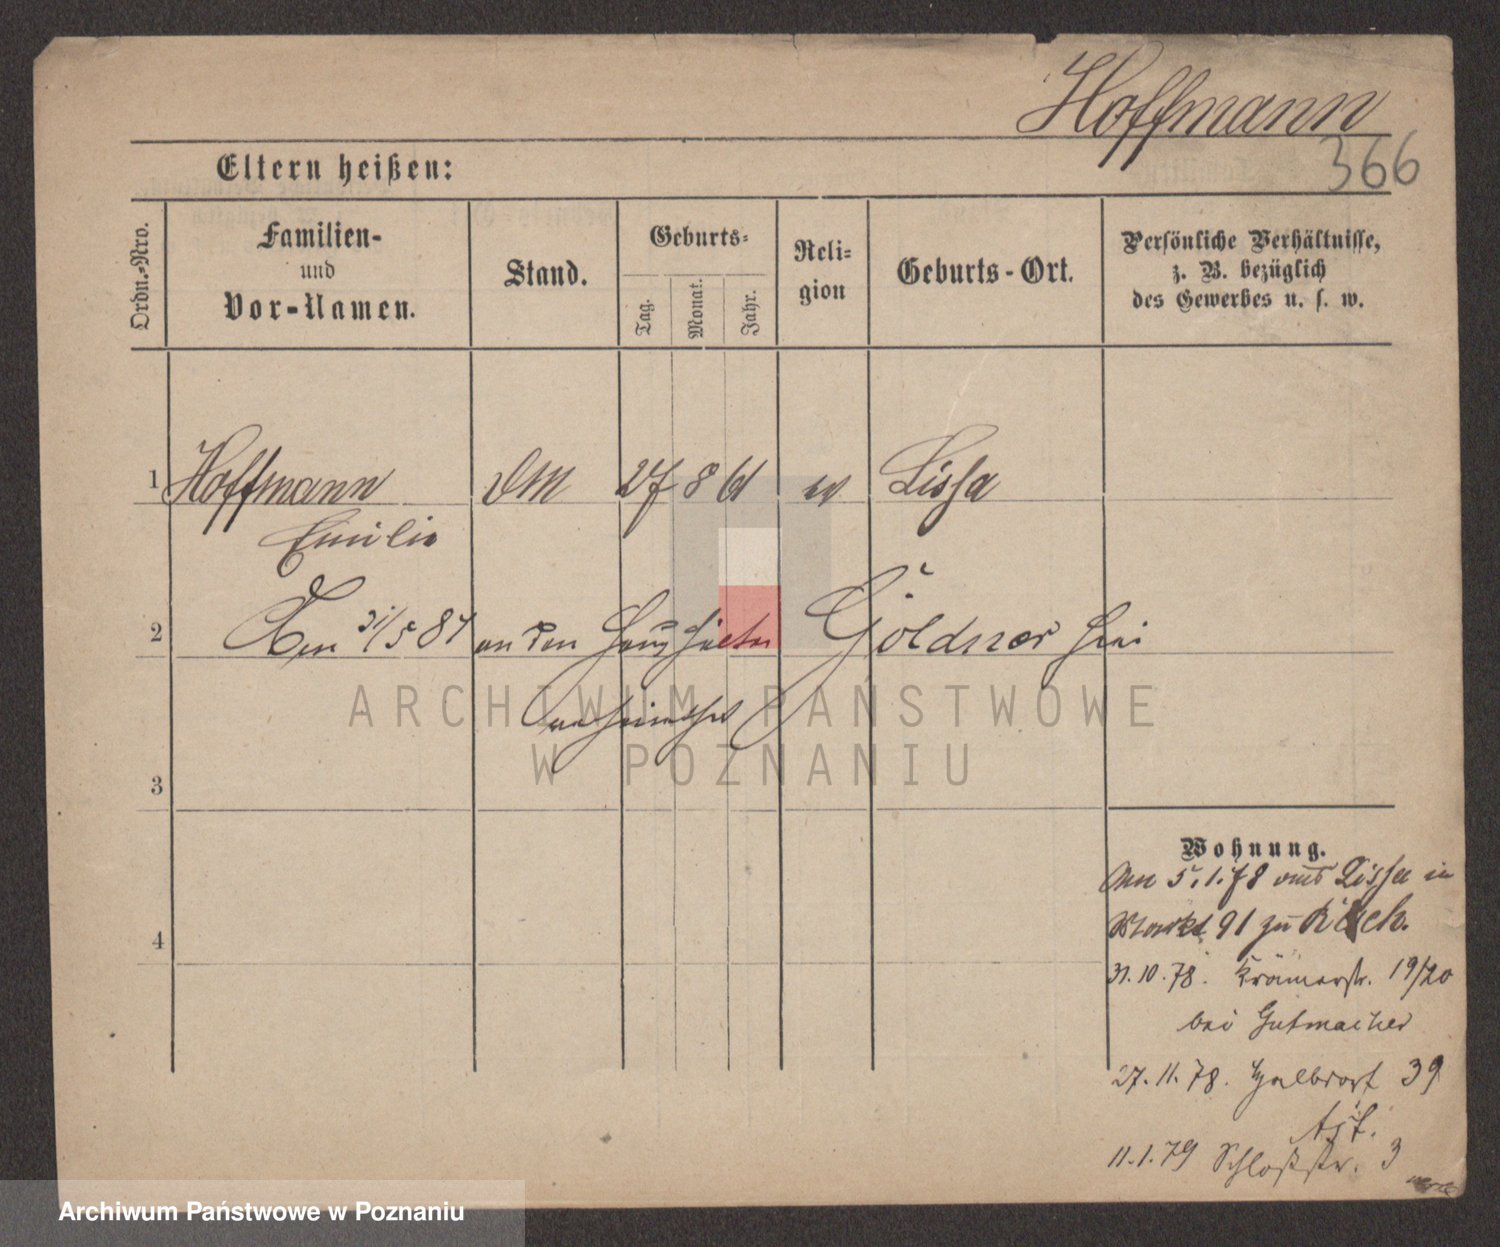 Hoffmann
366
Eltern heißen:
Ordn.-Nro.
Familien-
und
Vor-Namen.
Stand.
Geburts-
Tag.
Monat.
Jahr.
Reli-
gion
Geburts-Ort.
Persönliche Verhältnisse,
z. B. bezüglich
des Gewerbes u. s. w.
1 Hoffmann DM 27 8 61 ev Lissa
Emilie
2 Am 31/5 81 an den Haushälter Göldner hier
verheirathet
3
4
Wohnung.
5.1.78 aus Lissa in
Markt 91 zu
31.10.78. Krämerstr. 19/20
bei Gutmacher
27.11.78. Halbdorf 39
11.1.79 Schloßstr. 3
ARCHIWUM PAŃSTWOWE
W POZNANIU
Archiwum Państwowe w Poznaniu